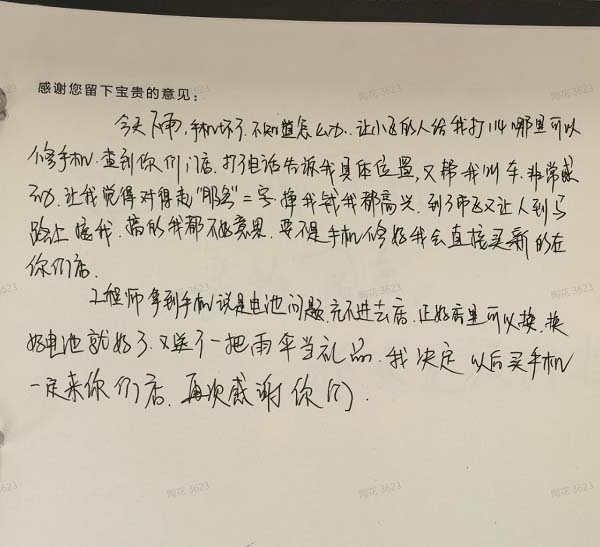 感谢您留下宝贵的意见：
今天下雨，手机坏了，不知道怎么办。让小区的人给我打114哪里可以
修手机。查到你们门店，打了电话告诉我具体位置，又帮我叫车，非常感
动，让我觉得对得起"服务"二字，挣我钱我都高兴，到了那又让人到马
路上接我，搞的我都不好意思，要不是手机修好我会直接买新的在
你们店。
工程师拿到手机说是电池问题，充不进去店，正好店里可以换，换
好电池就好了，又送了一把雨伞当礼品，我决定以后买手机
一定来你们店，再次感谢你们
陶花 3623